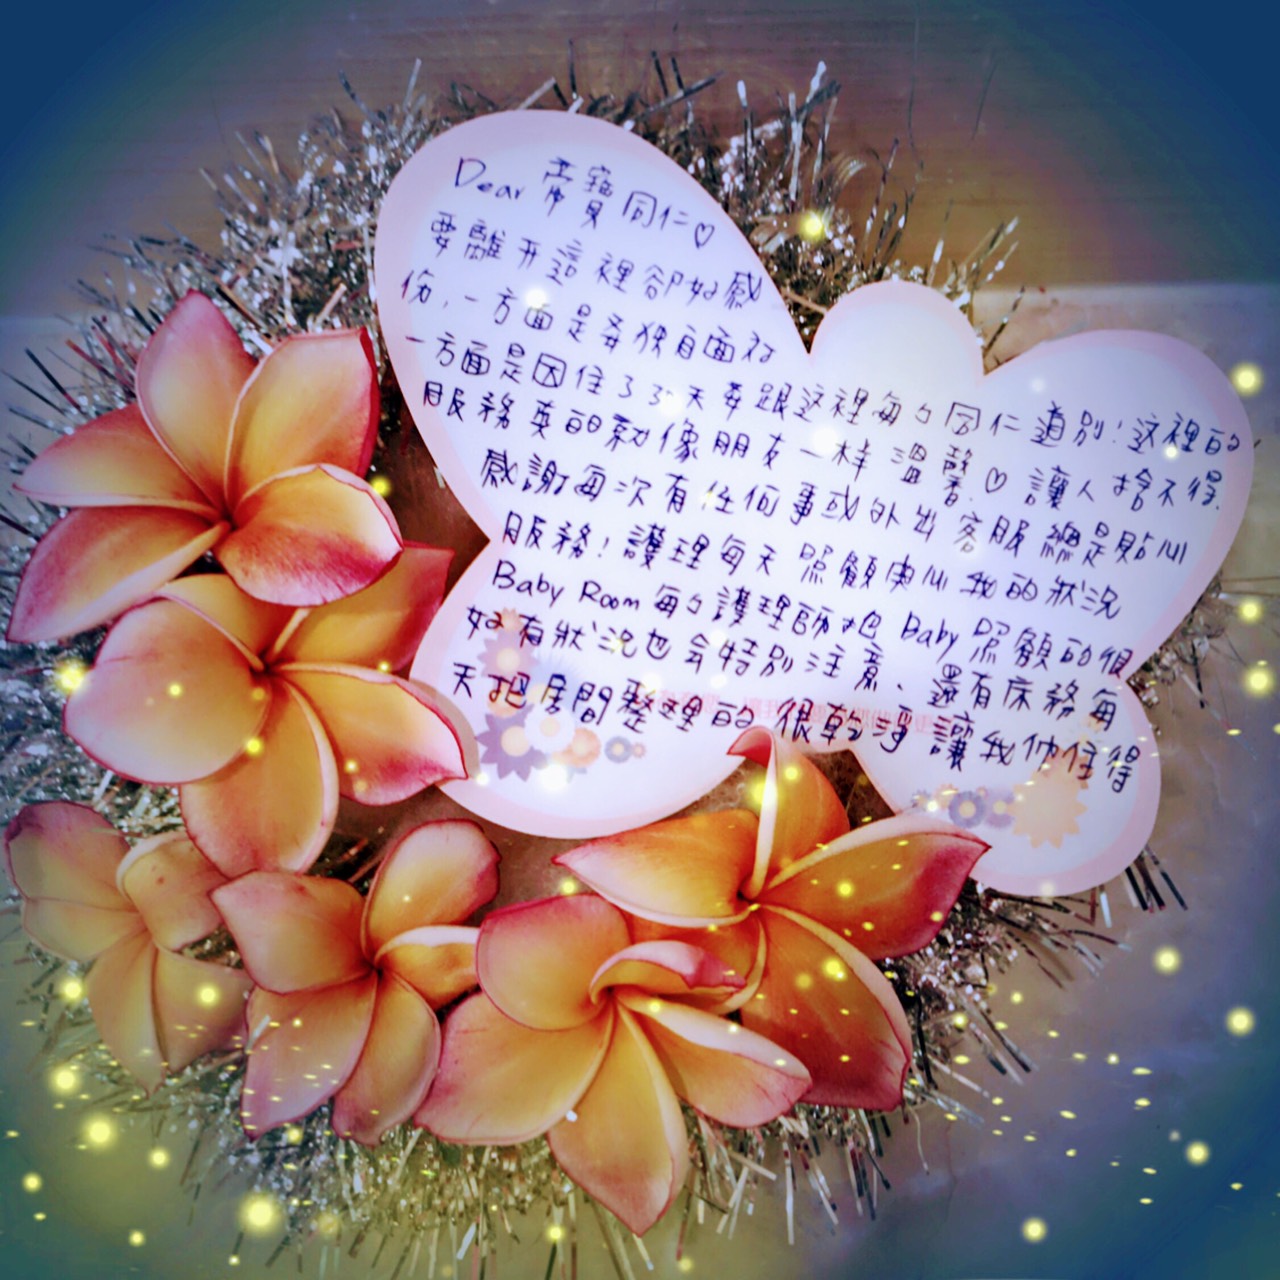 Dear 帝寶同仁♡
要離开這裡卻好感
伤,一方面是要独自面对
一方面是因住了35天要跟这裡每个同仁道別!这裡的
服務真的就像朋友一样溫馨.♡ 讓人捨不得.
感謝每次有任何事或外出客服總是貼心
服務!護理每天照顧关心我的狀況
Baby Room 每个護理師把 Baby 照顧的很
好有狀況也会特別注意、還有床務每
天把房間整理的很乾淨讓我们住得